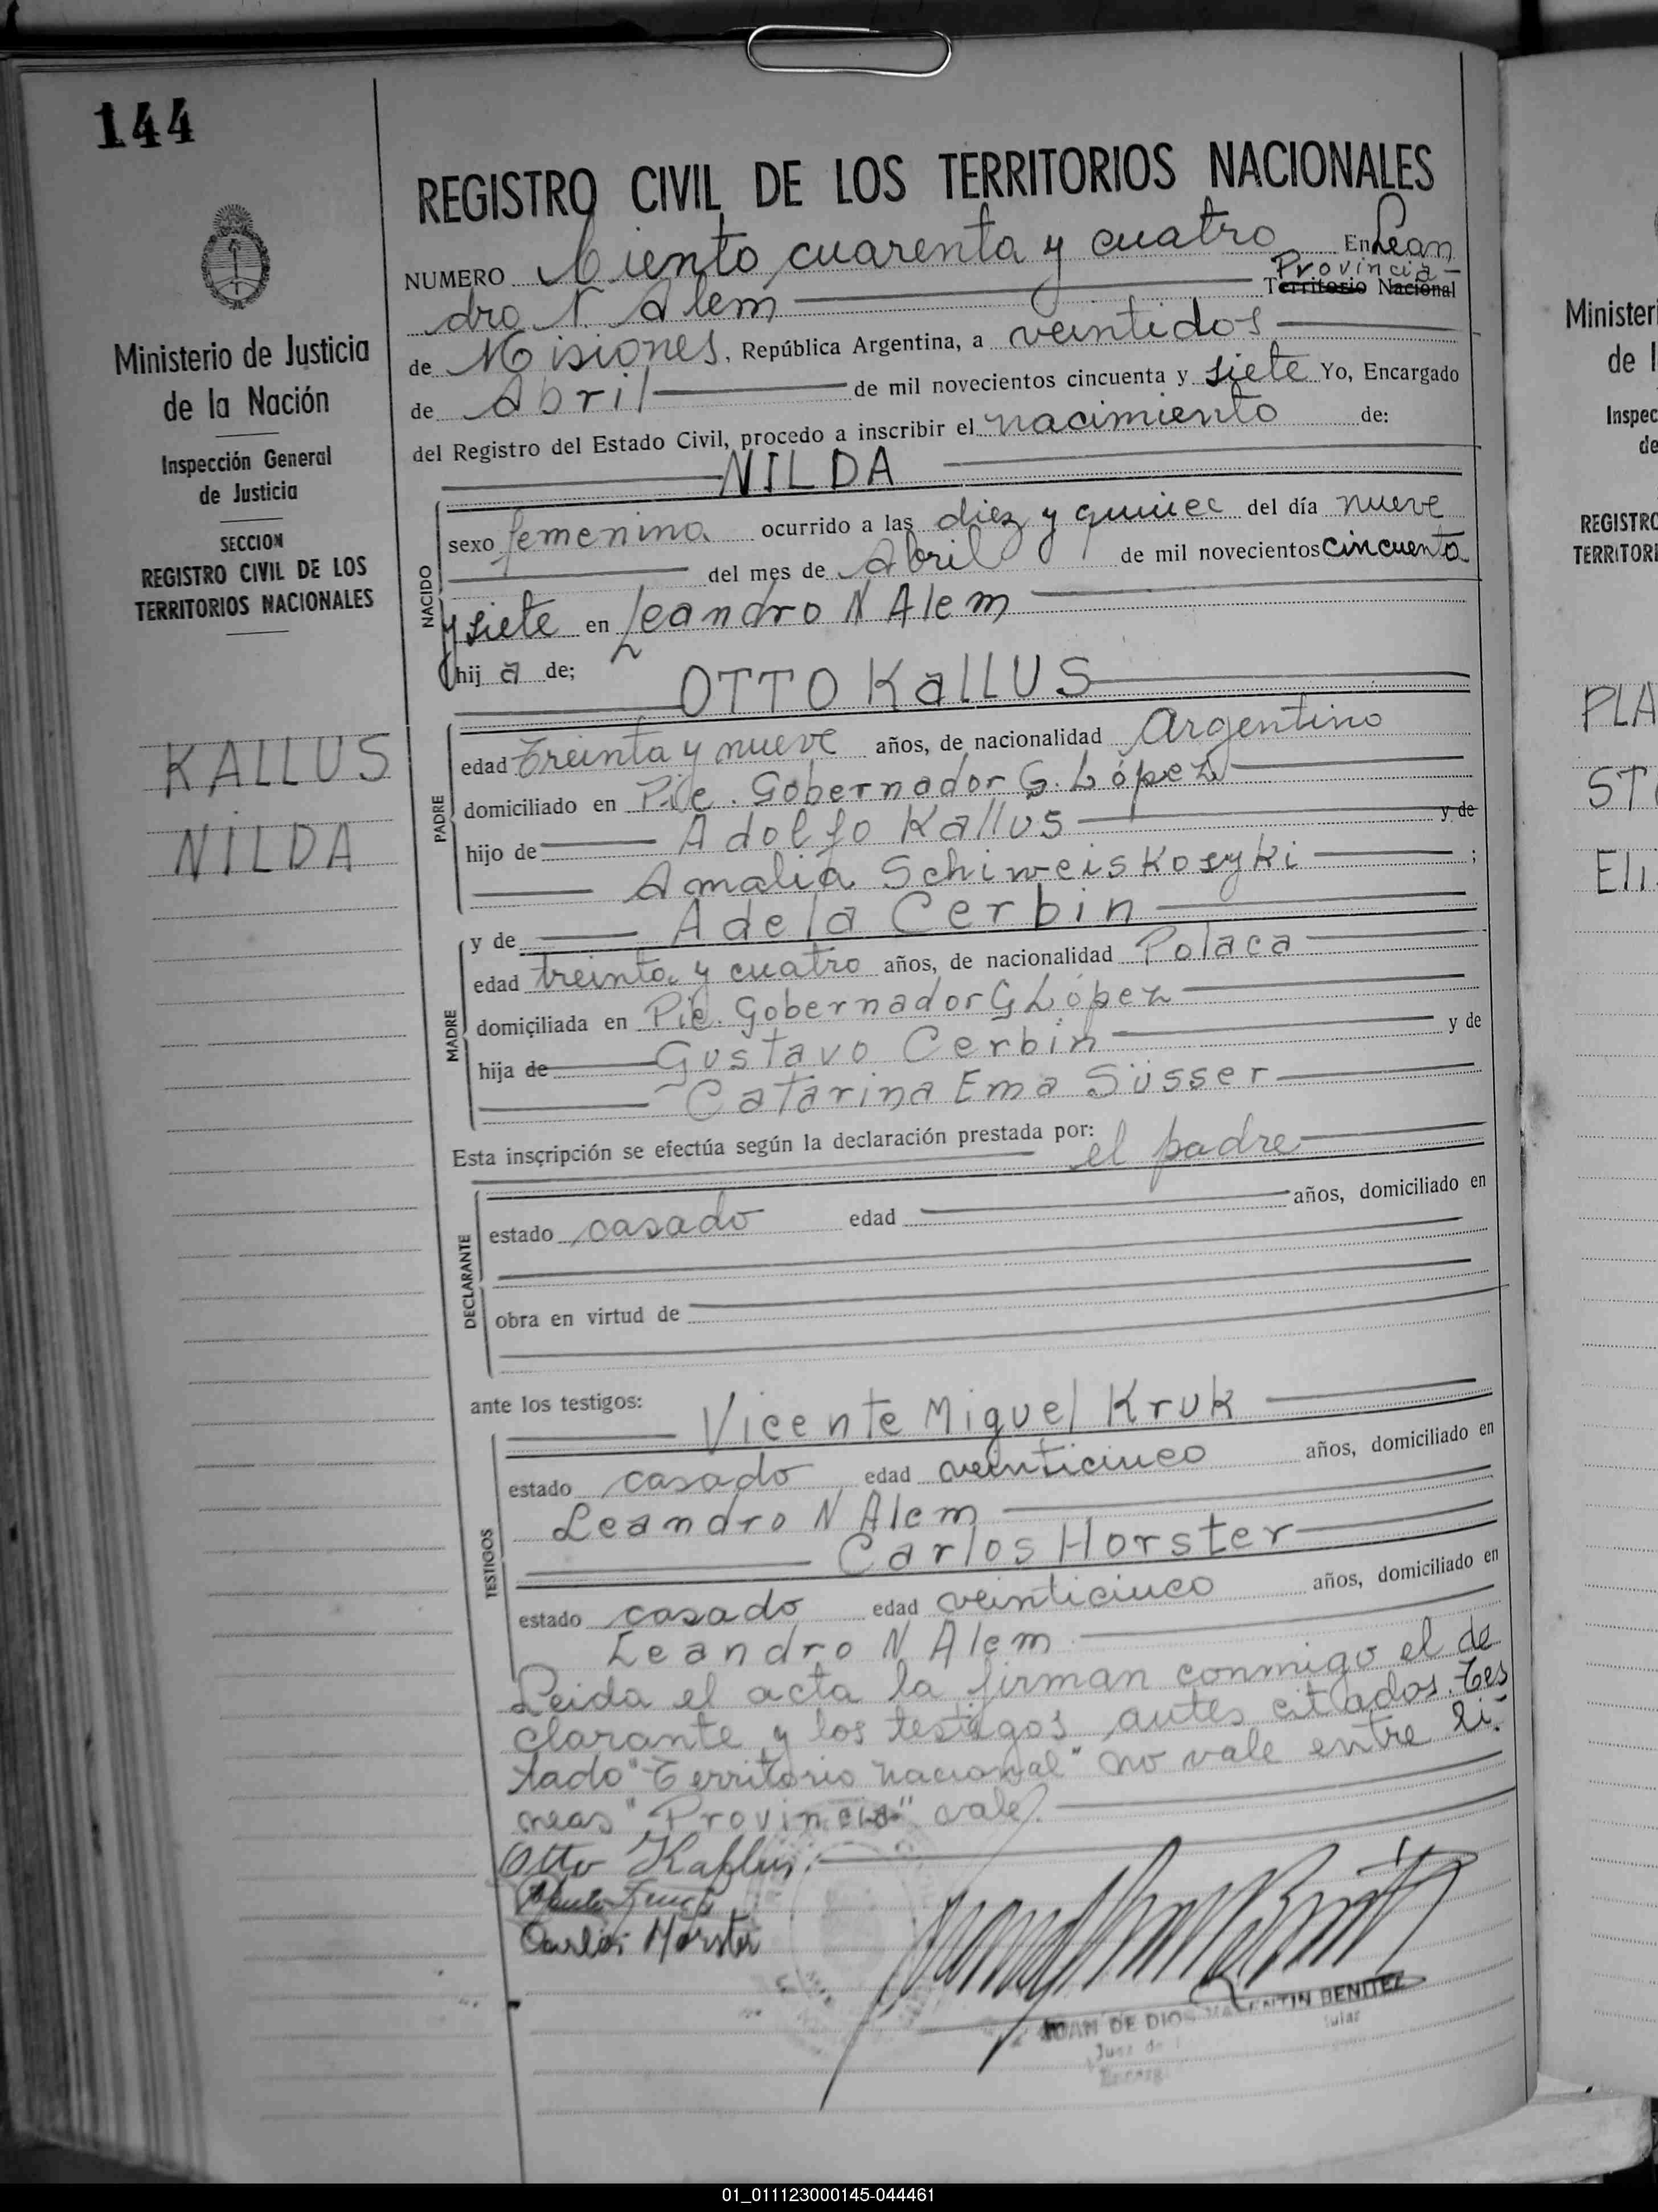 144
Ministerio de Justicia
de la Nación
Inspección General
de Justicia
SECCION
REGISTRO CIVIL DE LOS
TERRITORIOS NACIONALES
KALLUS
NILDA
REGISTRO CIVIL DE LOS TERRITORIOS NACIONALES
NUMERO Ciento cuarenta y cuatro En Lean
Provincia
dro N. Alem Territorio Nacional
de Misiones, República Argentina, a veintidos
de Abril de mil novecientos cincuenta y siete Yo, Encargado
del Registro del Estado Civil, procedo a inscribir el nacimiento de:
NILDA
NACIDO
sexo femenino ocurrido a las diez y quince del día nueve
del mes de Abril de mil novecientos cincuenta
y siete en Leandro N Alem
hij a de;
OTTO KALLUS
PADRE
edad treinta y nueve años, de nacionalidad Argentino
domiciliado en Pie. Gobernador G. López
hijo de Adolfo Kallus y de
Amalia Schiweiskosyki ;
y de Adela Cerbin
MADRE
edad treinta y cuatro años, de nacionalidad Polaca
domiciliada en Pie. Gobernador G López
hija de Gustavo Cerbin y de
Catarina Ema Süsser
Esta inscripción se efectúa según la declaración prestada por:
el padre
DECLARANTE
estado casado edad años, domiciliado en
obra en virtud de
ante los testigos:
Vicente Miguel Kruk
TESTIGOS
estado casado edad veinticinco años, domiciliado en
Leandro N Alem
Carlos Horster
estado casado edad veinticinco años, domiciliado en
Leandro N Alem
Leida el acta la firman conmigo el de
clarante y los testigos antes citados. Tes
tado "Territorio nacional" no vale entre li-
neas "Provincia" vale.
Otto Kallus
Carlos Horster
JUAN DE DIOS VALENTIN BENITEZ
Juez de
Encarg
Minister
de l
Inspec
de
REGISTRO
TERRITORI
PLA
ST
Eli
01_011123000145-044461